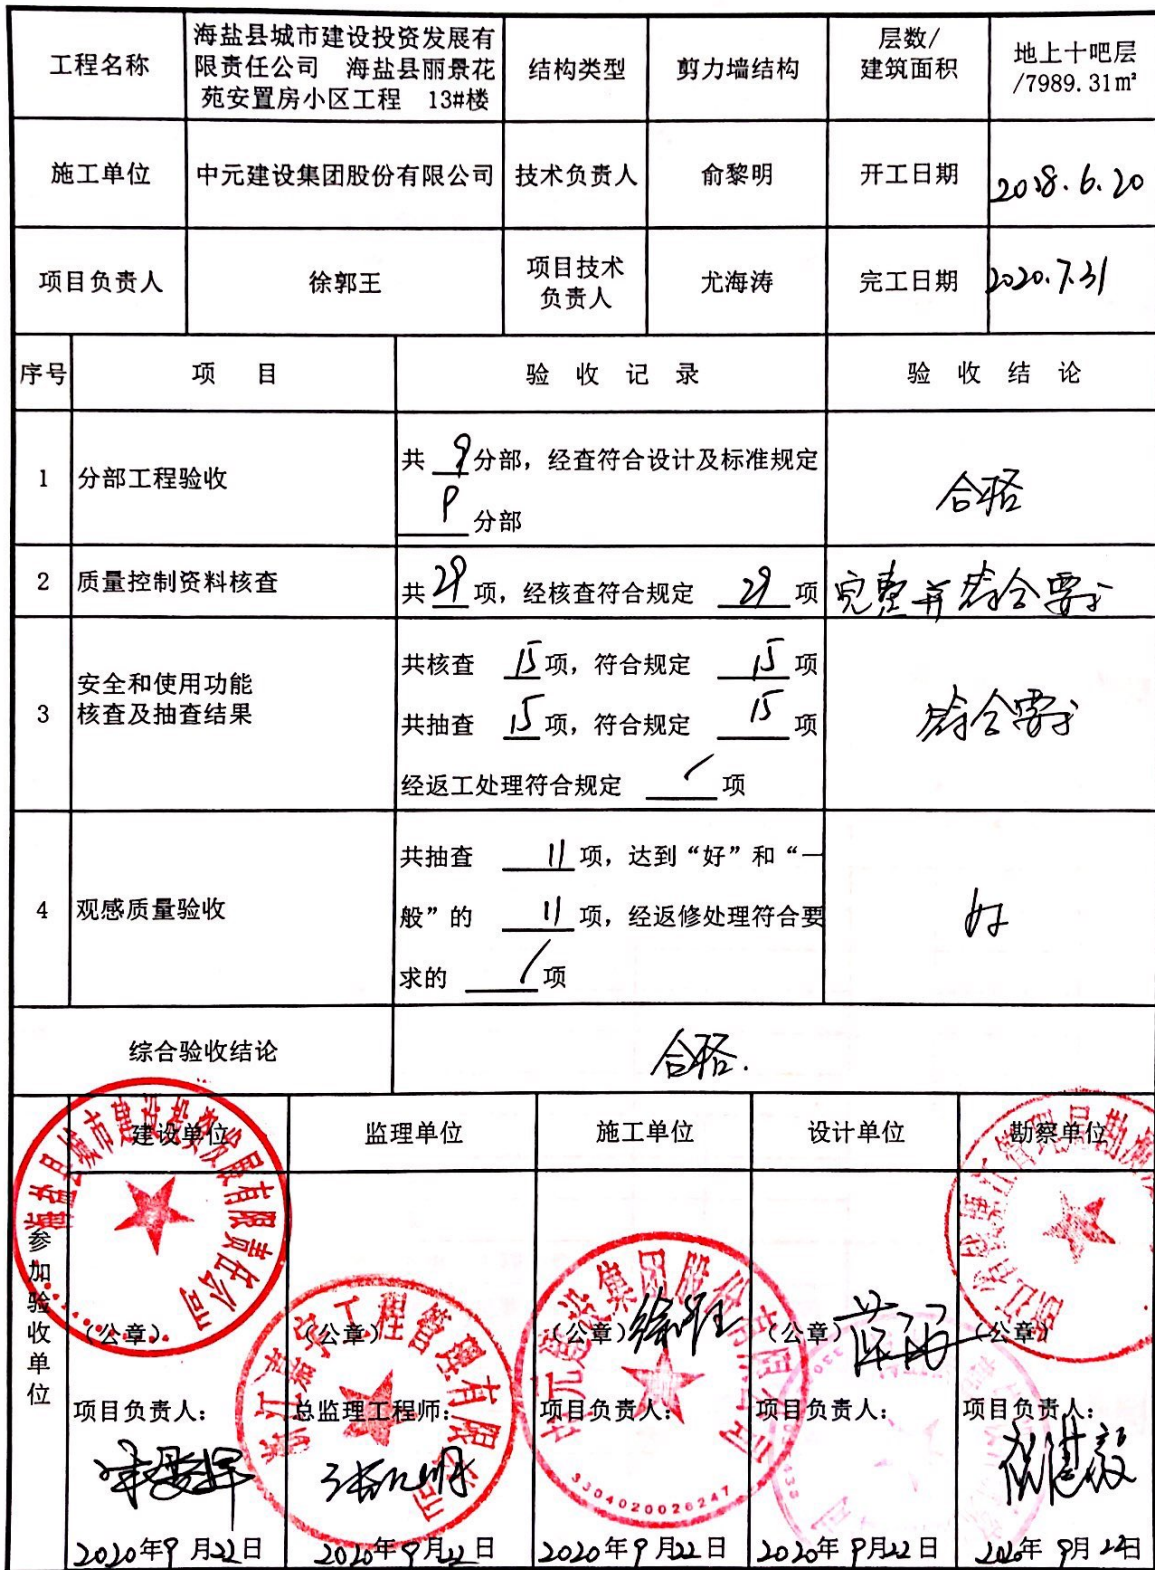 工程名称
海盐县城市建设投资发展有
限责任公司 海盐县丽景花
苑安置房小区工程 13#楼
结构类型
剪力墙结构
层数/
建筑面积
地上十吧层
/7989.31㎡
施工单位
中元建设集团股份有限公司
技术负责人
俞黎明
开工日期
2018.6.20
项目负责人
徐郭王
项目技术
负责人
尤海涛
完工日期
2020.7.31
序号
项 目
验 收 记 录
验 收 结 论
1
分部工程验收
共 9 分部，经查符合设计及标准规定
9 分部
合格
2
质量控制资料核查
共 29 项，经核查符合规定 29 项
完整并符合要求
3
安全和使用功能
核查及抽查结果
共核查 15 项，符合规定 15 项
共抽查 15 项，符合规定 15 项
经返工处理符合规定 / 项
符合要求
4
观感质量验收
共抽查 11 项，达到“好”和“一
般”的 11 项，经返修处理符合要
求的 / 项
好
综合验收结论
合格.
参加验收单位
建设单位
监理单位
施工单位
设计单位
勘察单位
海盐县城市建设投资发展有限责任公司
工程管理有限公司
中元建设集团股份有限公司
3304020026247
（公章）
（公章）
（公章）
（公章）
（公章）
项目负责人：
总监理工程师：
项目负责人：
项目负责人：
项目负责人：
2020年9月22日
2020年9月22日
2020年9月22日
2020年9月22日
2020年9月22日